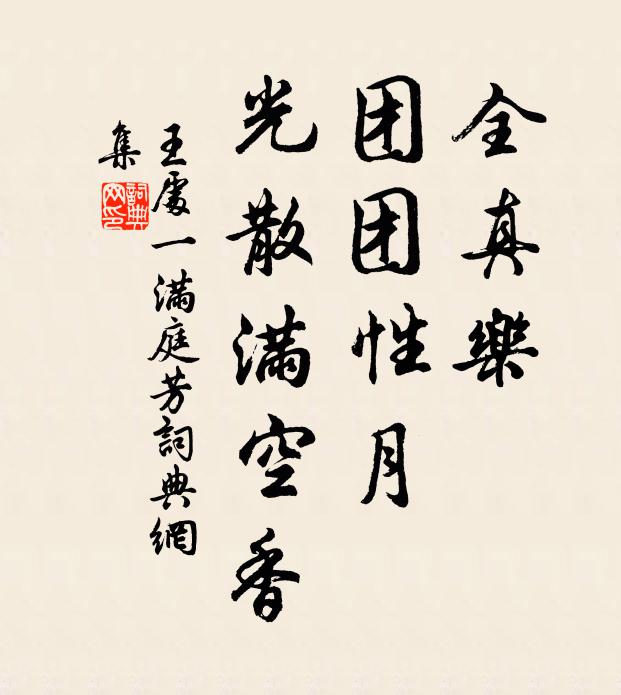 全真樂
团团性月
光散满空香
王處一满庭芳詞典網
集
詞典
网印